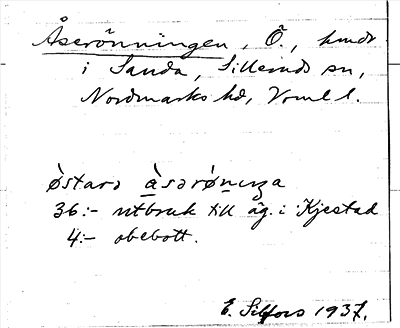 Åserönningen, Ö., hmdr
i Sanda, Sillerud sn,
Nordmarks hd, Vrml l.
òstarə àsərǿnıŋa
36:- utbruk till äg. i Kjestad
4:- obebott.
E. Silfors 1937.